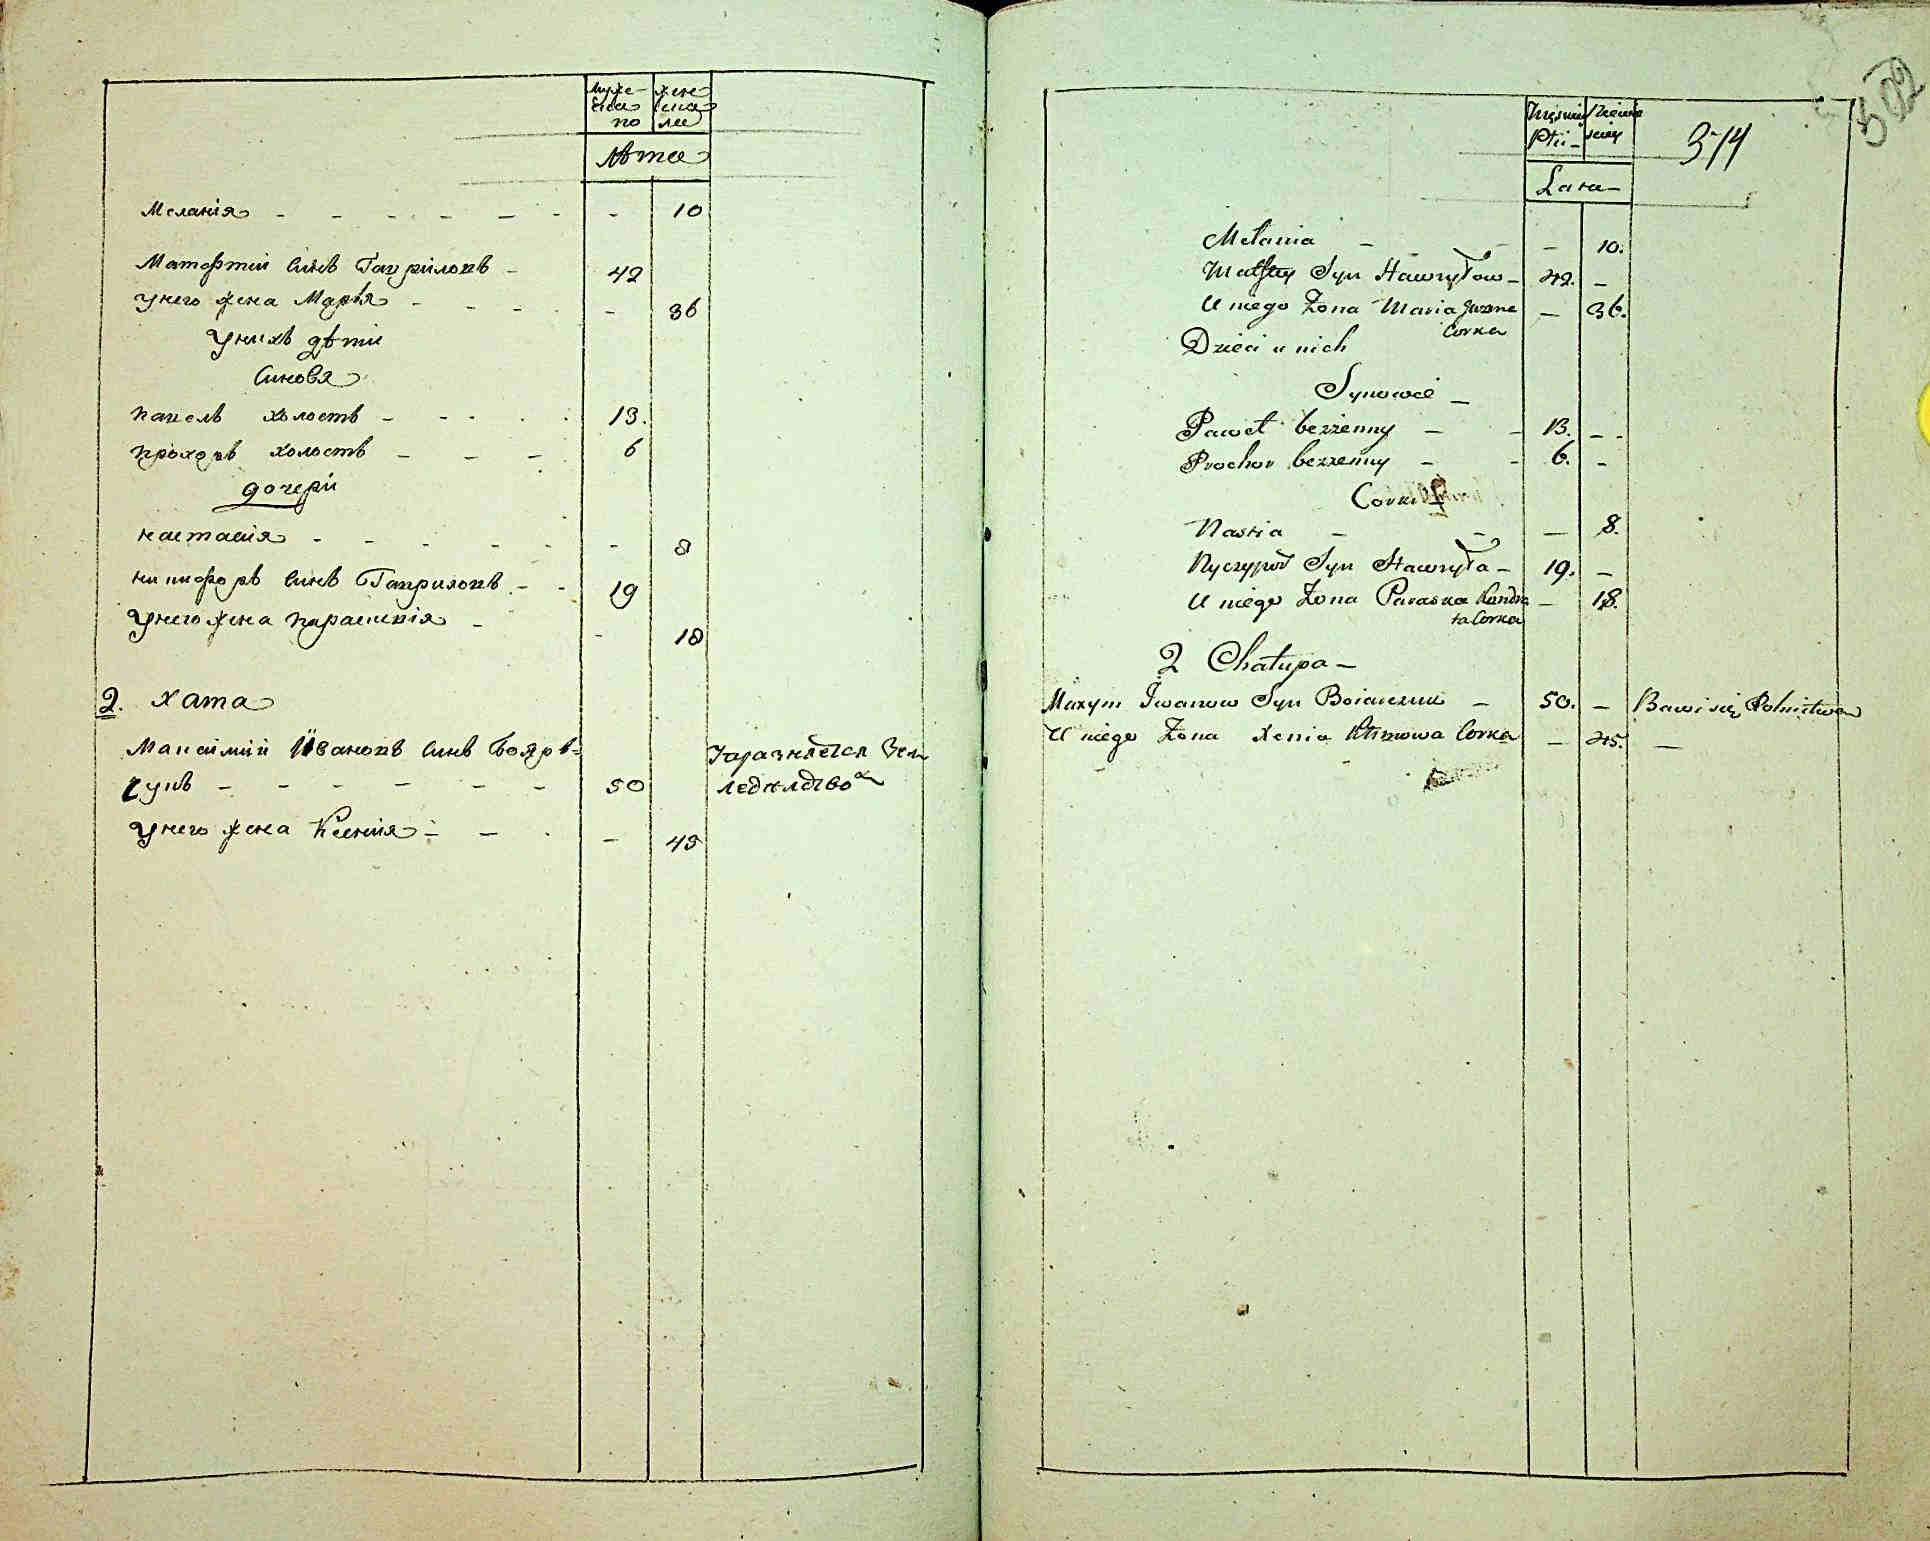 муже-
ска
по
жен
ска
лѣта
Меланія - - - - - - 10
Матофтей синъ Гаврiловъ - 42
унего жена Марья - - - - 36
Унихъ дѣти
Синовя
Павелъ холостъ - - - - 13.
Прохоръ холостъ - - - 6
дочери
настасія - - - - - - 8
никифоръ синъ Гавриловъ - - 19
Унего жена Параскевія - - 18
2. хата
Максимий Ивановъ синъ Бояръ-
чукъ - - - - - - 50
унего жена Ксенія - - - - 45
502
314
Lata
Melania - - - 10.
Matfiey Syn Hawryłow - 42. -
U niego Żona Maria - 36.
Corka
Dzieci u nich
Synowie -
Paweł bezżenny - - 13. - -
Prochor bezżenny - - 6. -
Corki
Nastia - - - 8.
Nyczypor Syn Hawryła - 19. -
U niego Żona Paraska Kondra - 18.
ta Corka
2 Chałupa -
Maxym Iwanow Syn Boiarczuk - 50. - Bawi się Rolnictwem
U niego Żona Xenia Klimowa Corka - 45. -